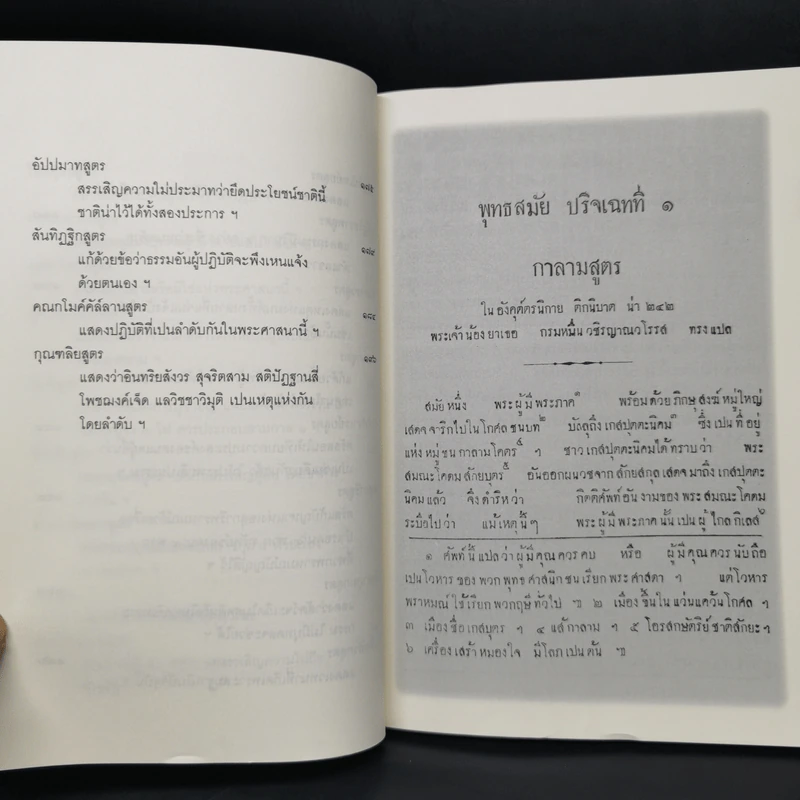 อัปปมาทสูตร
สรรเสิญความไม่ประมาทว่ายึดประโยชน์ชาตินี้
ชาติน่าไว้ได้ทั้งสองประการ ฯ
สันทิฏฐิกสูตร
แก้ด้วยข้อว่าธรรมอันผู้ปฏิบัติจะพึงเหนแจ้ง
ด้วยตนเอง ฯ
คณกโมค์คัล์ลานสูตร ๑๘๔
แสดงปฏิบัติที่เปนลำดับกันในพระศาสนานี้ ฯ
กุณฑลิยสูตร ๑๙๖
แสดงว่าอินทริยสังวร สุจริตสาม สติปัฏฐานสี่
โพชฌงค์เจ็ด แลวิชชาวิมุติ เปนเหตุแห่งกัน
โดยลำดับ ฯ
พุทธสมัย ปริจเฉทที่ ๑
กาลามสูตร
ใน อังคุต์ตรนิกาย ติกนิบาต น่า ๒๔๒
พระเจ้าน้องยาเธอ กรมหมื่นวชิรญาณวโรรส ทรงแปล
สมัยหนึ่ง พระผู้มีพระภาค พร้อมด้วยภิกษุสงฆ์หมู่ใหญ่
เสดจจาริกไปในโกศลชนบท๒ บัลลุถึงเกสปุตตะนิคม๓ ซึ่งเปนที่อยู่
แห่งหมู่ชนกาลามโคตร๔ ฯ ชาวเกสปุตตะนิคมได้ทราบว่า พระ
สมณะโคดมสักยบุตร๕ อันออกผนวชจากสักยสกุลเสดจมาถึงเกสปุตตะ
นิคมแล้ว จึ่งดำริหว่า กิตติศัพท์อันงามของพระสมณะโคดม
ระบือไปว่า แม้เหตุนี้ๆ พระผู้มีพระภาคนั้นเปนผู้ไกลกิเลส๖
๑ ศัพท์นี้แปลว่าผู้มีคุณควรคบ หรือ ผู้มีคุณควรนับถือ
เปนโวหารของพวกพุทธศาสนิกชนเรียกพระศาสดา ฯ แต่โวหาร
พราหมณ์ใช้เรียกพวกฤษีทั่วไป ๚ ๒ เมืองขึ้นในแว่นแคว้นโกศล ฯ
๓ เมืองชื่อเกสบุตร ฯ ๔ แส้กาลาม ฯ ๕ โอรสกษัตริย์ชาติสักยะ ฯ
๖ เครื่องเสร้าหมองใจ มีโลภเปนต้น ๚